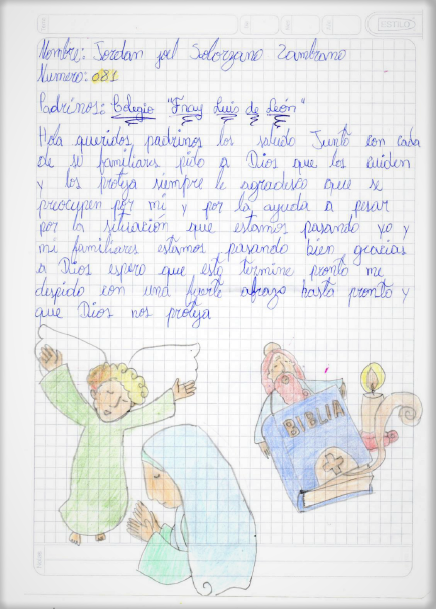 ESTILO
Nombre: Jordan joel Solorzano Zambrano
Numero: 081
Padrinos: Colegio "Fray Luis de León"
Hola queridos padrinos los saludo Junto con cada
de su familiares pido a Dios que los cuiden
y los proteja siempre le agradesco que se
preocupen por mi y por la ayuda a pesar
por la situación que estamos pasando yo y
mi familiares estamos pasando bien gracias
a Dios espero que esto termine pronto me
despido con und fuerte abrazo hasta pronto y
que Dios nos proteja
BIBLIA